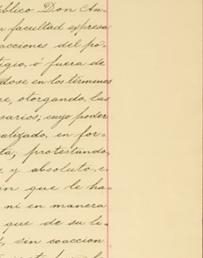 blico Don An-
a facultad expresa
acciones del po-
tegio, ó fuera de
dose en los términos
re, otorgando, las
sarios; cuyo poder
alizado, en for-
ta; protestando,
e y absoluto, e
en que le ha
ni en manera
que de su le-
, sin coaccion